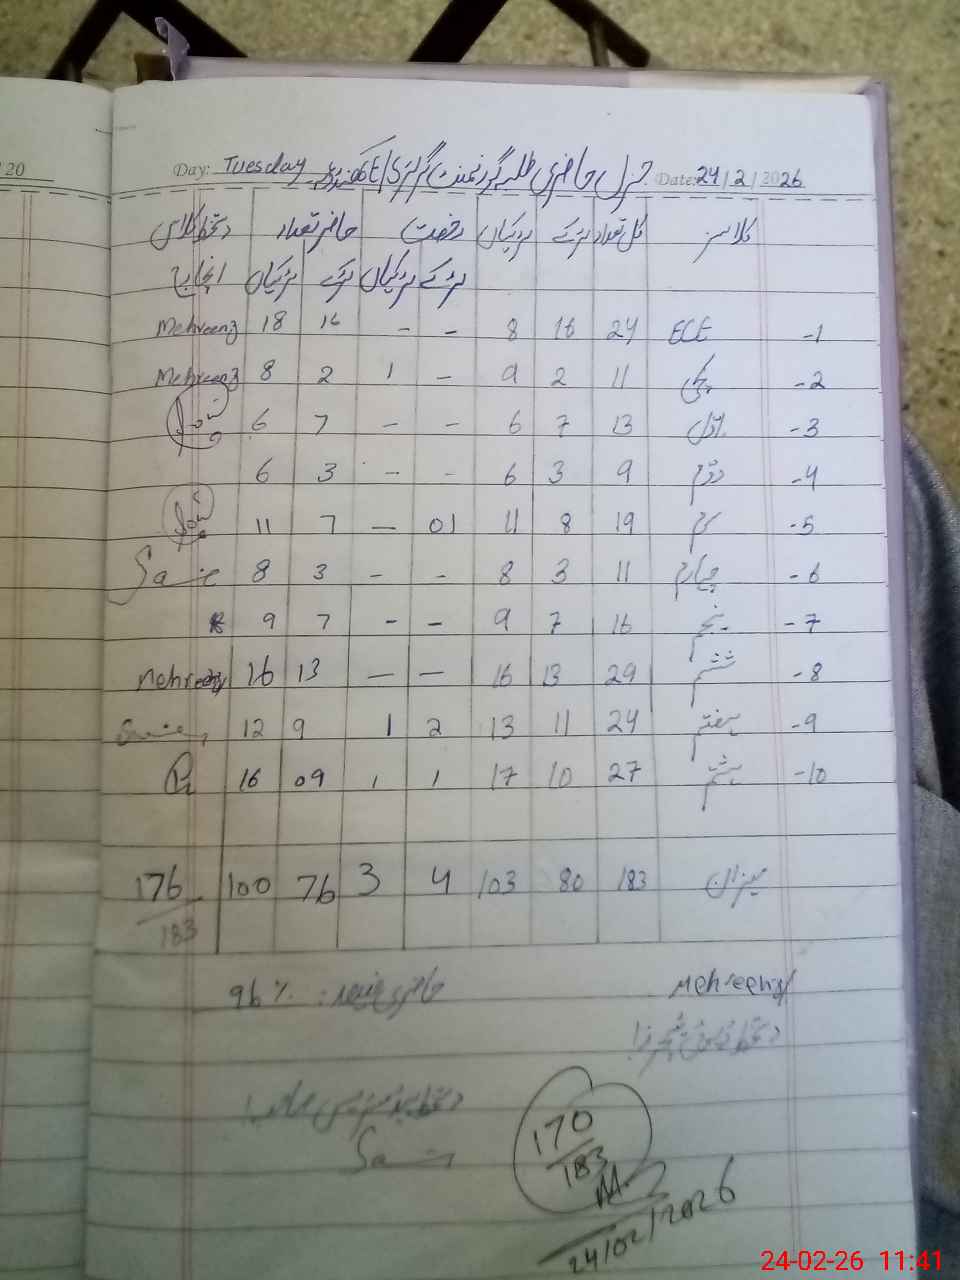 20
Day: Tuesday جنرل حاضری طلبہ گورنمنٹ گرلز E/S Date: 24/2/2026
کلاسز کل تعداد لڑکے لڑکیاں رخصت حاضر تعداد دستخط کلاس
لڑکے لڑکیاں لڑکے لڑکیاں انچارج
1- ECE 24 16 8 - - 16 18 Mehreen
2- کچی 11 2 9 - 1 2 8 Mehreen
3- اول 13 7 6 - - 7 6
4- دوم 9 3 6 - - 3 6
5- سوم 19 8 11 01 - 7 11
6- چہارم 11 3 8 - - 3 8
7- پنجم 16 7 9 - - 7 9
8- ششم 29 13 16 - - 13 16 Mehreen
9- ہفتم 24 11 13 2 1 9 12
10- ہشتم 27 10 17 1 1 09 16
میزان 183 80 103 4 3 76 100 176/183
Mehreen حاضری فیصد: 96%
دستخط
دستخط ہیڈ مسٹریس صاحبہ
170/183
24/02/2026
24-02-26 11:41